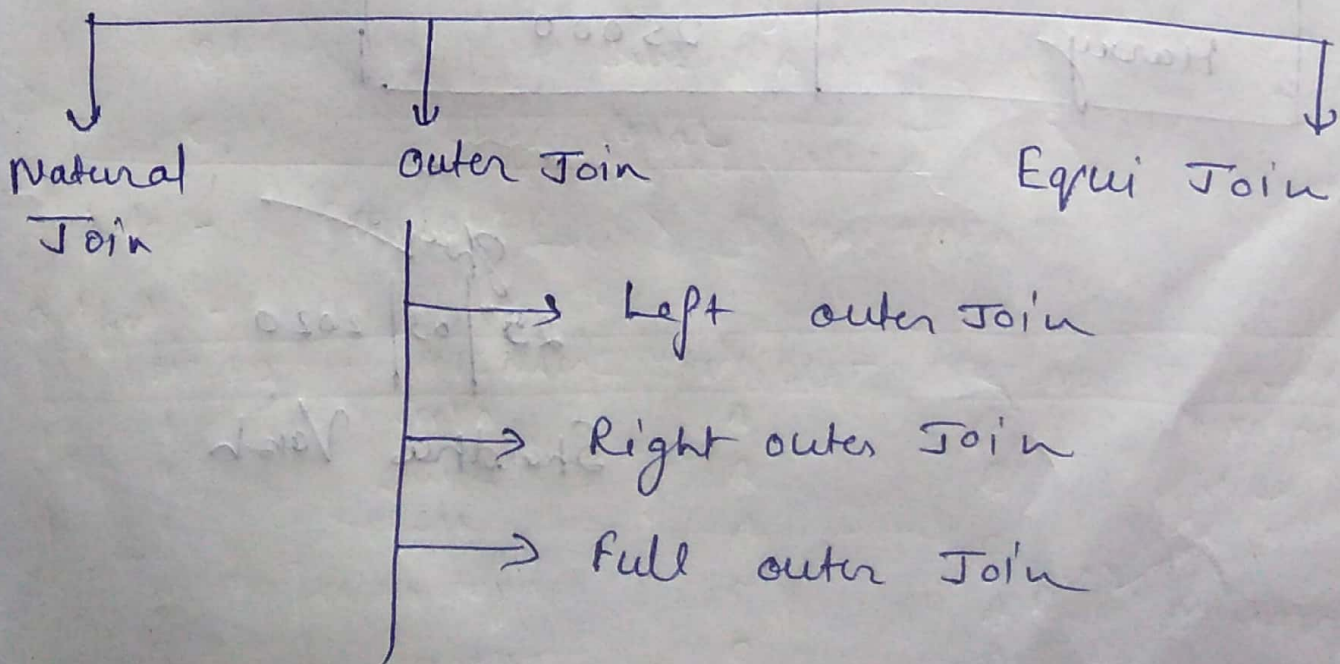 Natural
Join
Outer Join
Equi Join
Left outer Join
Right outer Join
Full outer Join